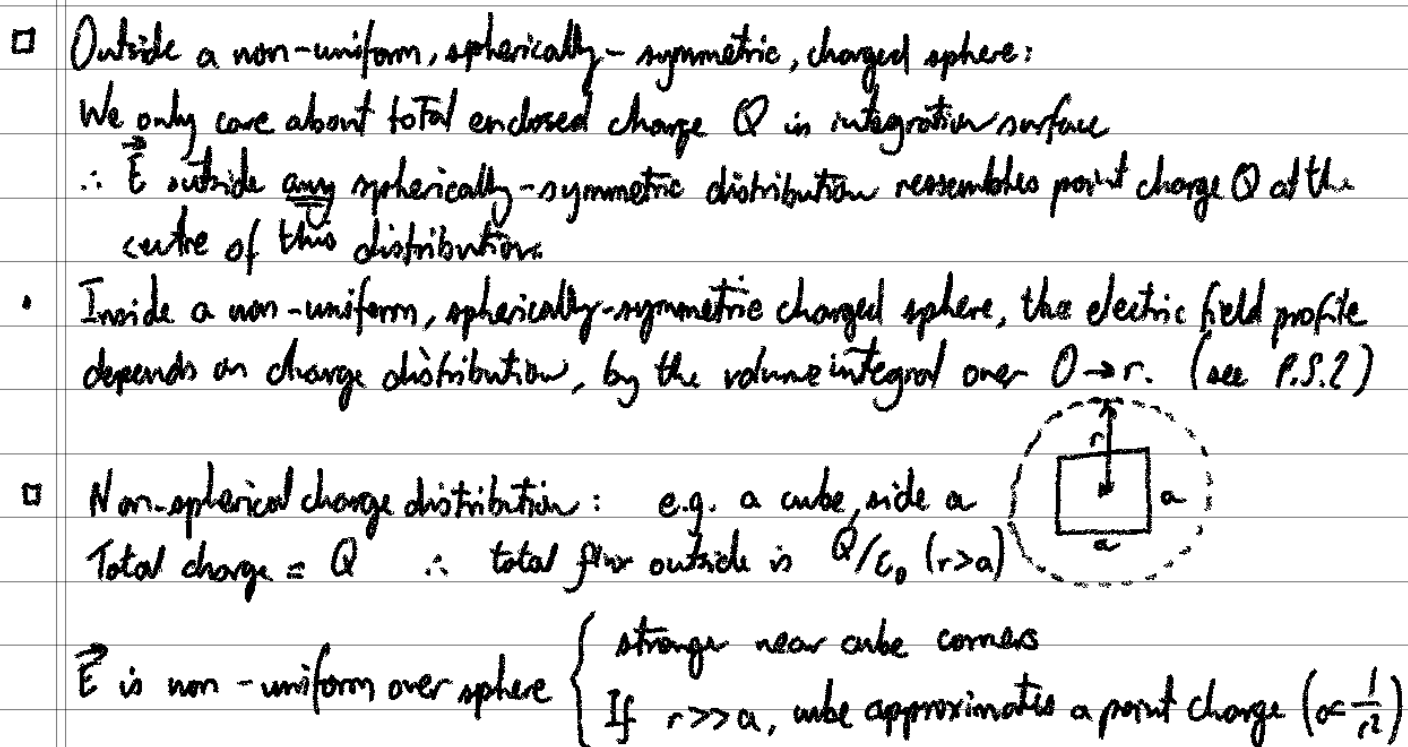 Outside a non-uniform, spherically-symmetric, charged sphere:
We only care about total enclosed charge Q in integration surface
∴ E⃗ outside any spherically-symmetric distribution resembles point charge Q at the
centre of this distribution.
• Inside a non-uniform, spherically-symmetric charged sphere, the electric field profile
depends on charge distribution, by the volume integral over 0→r. (see P.S.2)
r
Non-spherical charge distribution: e.g. a cube, side a
a
a
Total charge = Q ∴ total flux outside is Q/ε₀ (r>a)
E⃗ is non-uniform over sphere { stronger near cube corners
If r>>a, cube approximates a point charge (∝ 1/r²)